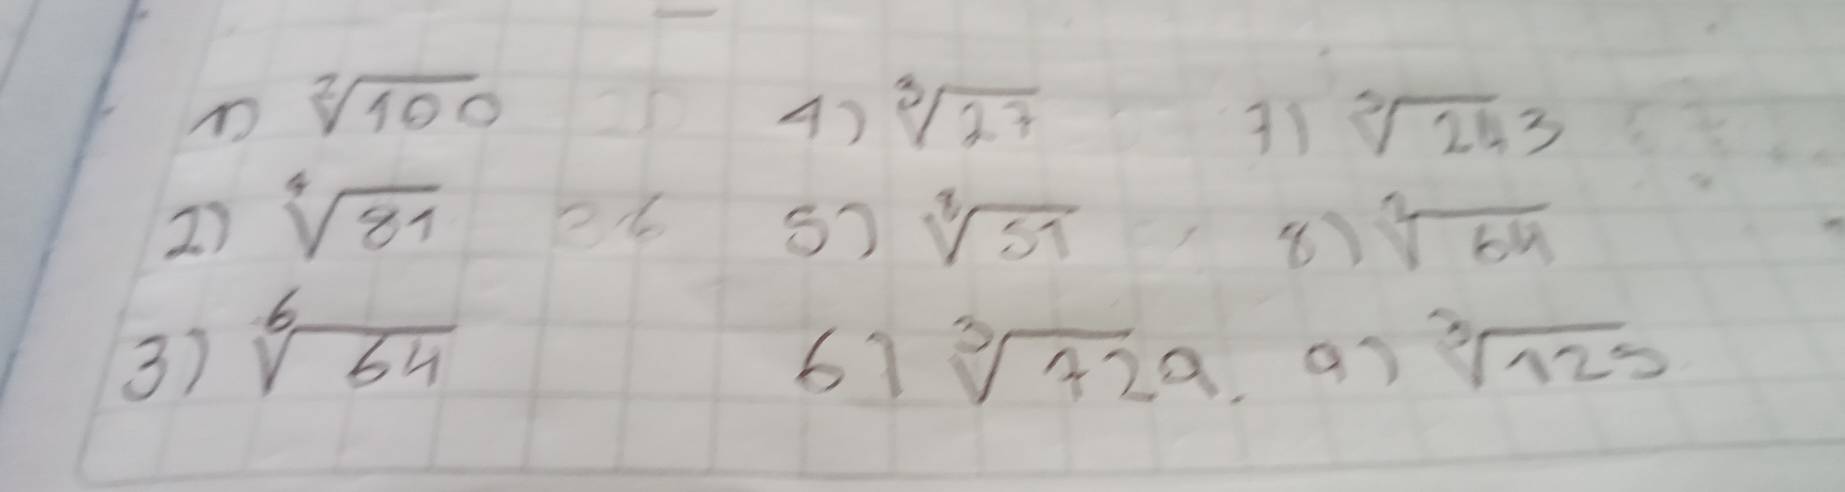 1) ²√100 4) ³√27 7) ³√243
2) ⁴√81 5) √51 8) ²√64
3) ⁶√64 6) ³√729. 9) ³√125